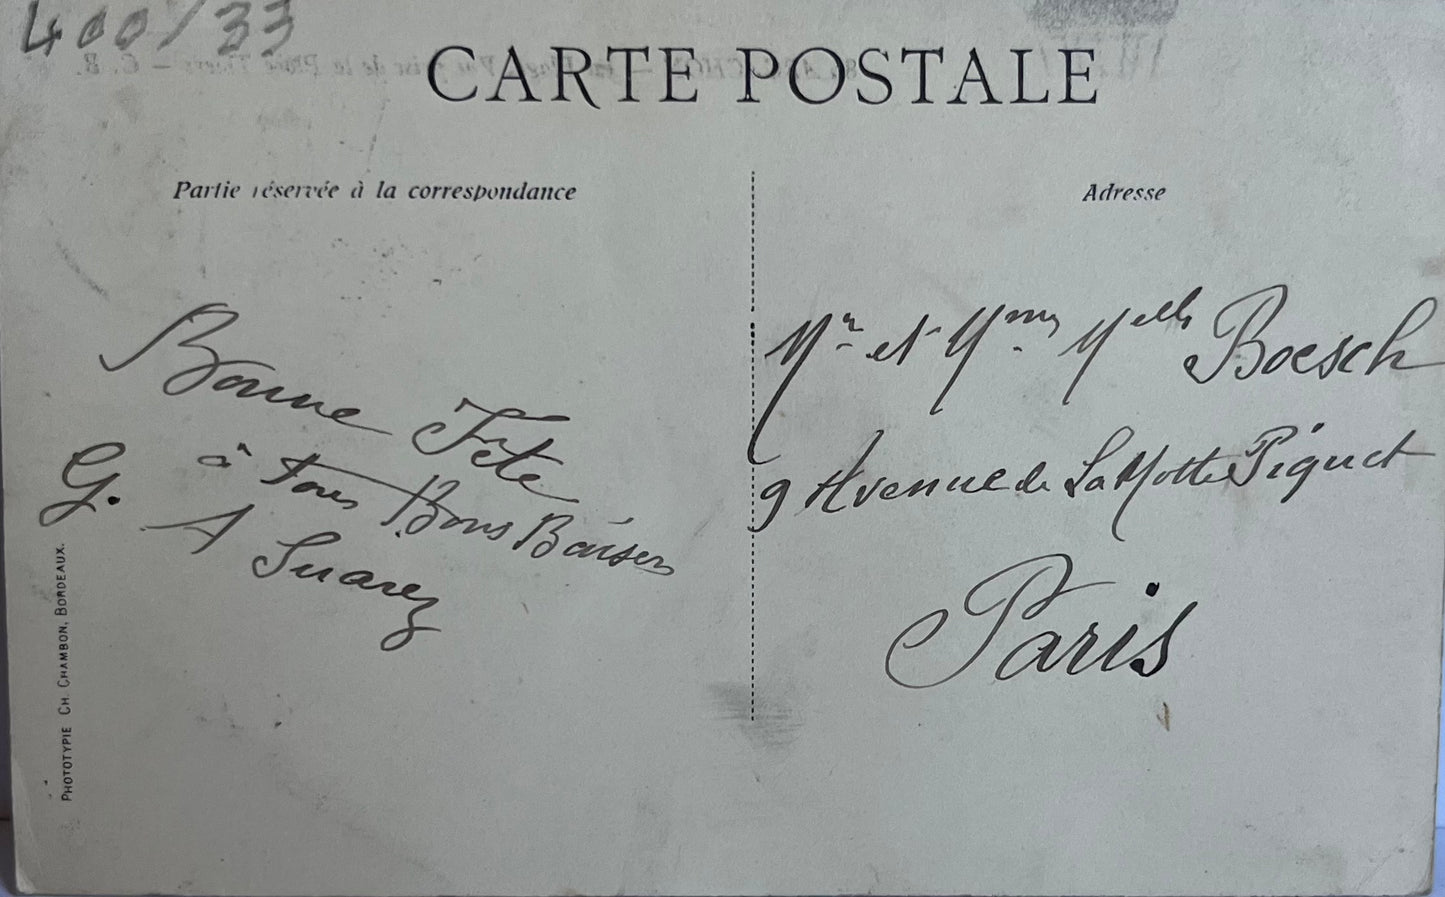 400/33
CARTE POSTALE
Partie réservée à la correspondance
Adresse
Bonne Fête
à tous Bons Baisers
G. A Suarez
Mr et Mmes Melles Boesch
9 Avenue de La Motte Piquet
Paris
PHOTOTYPIE CH. CHAMBON, BORDEAUX.